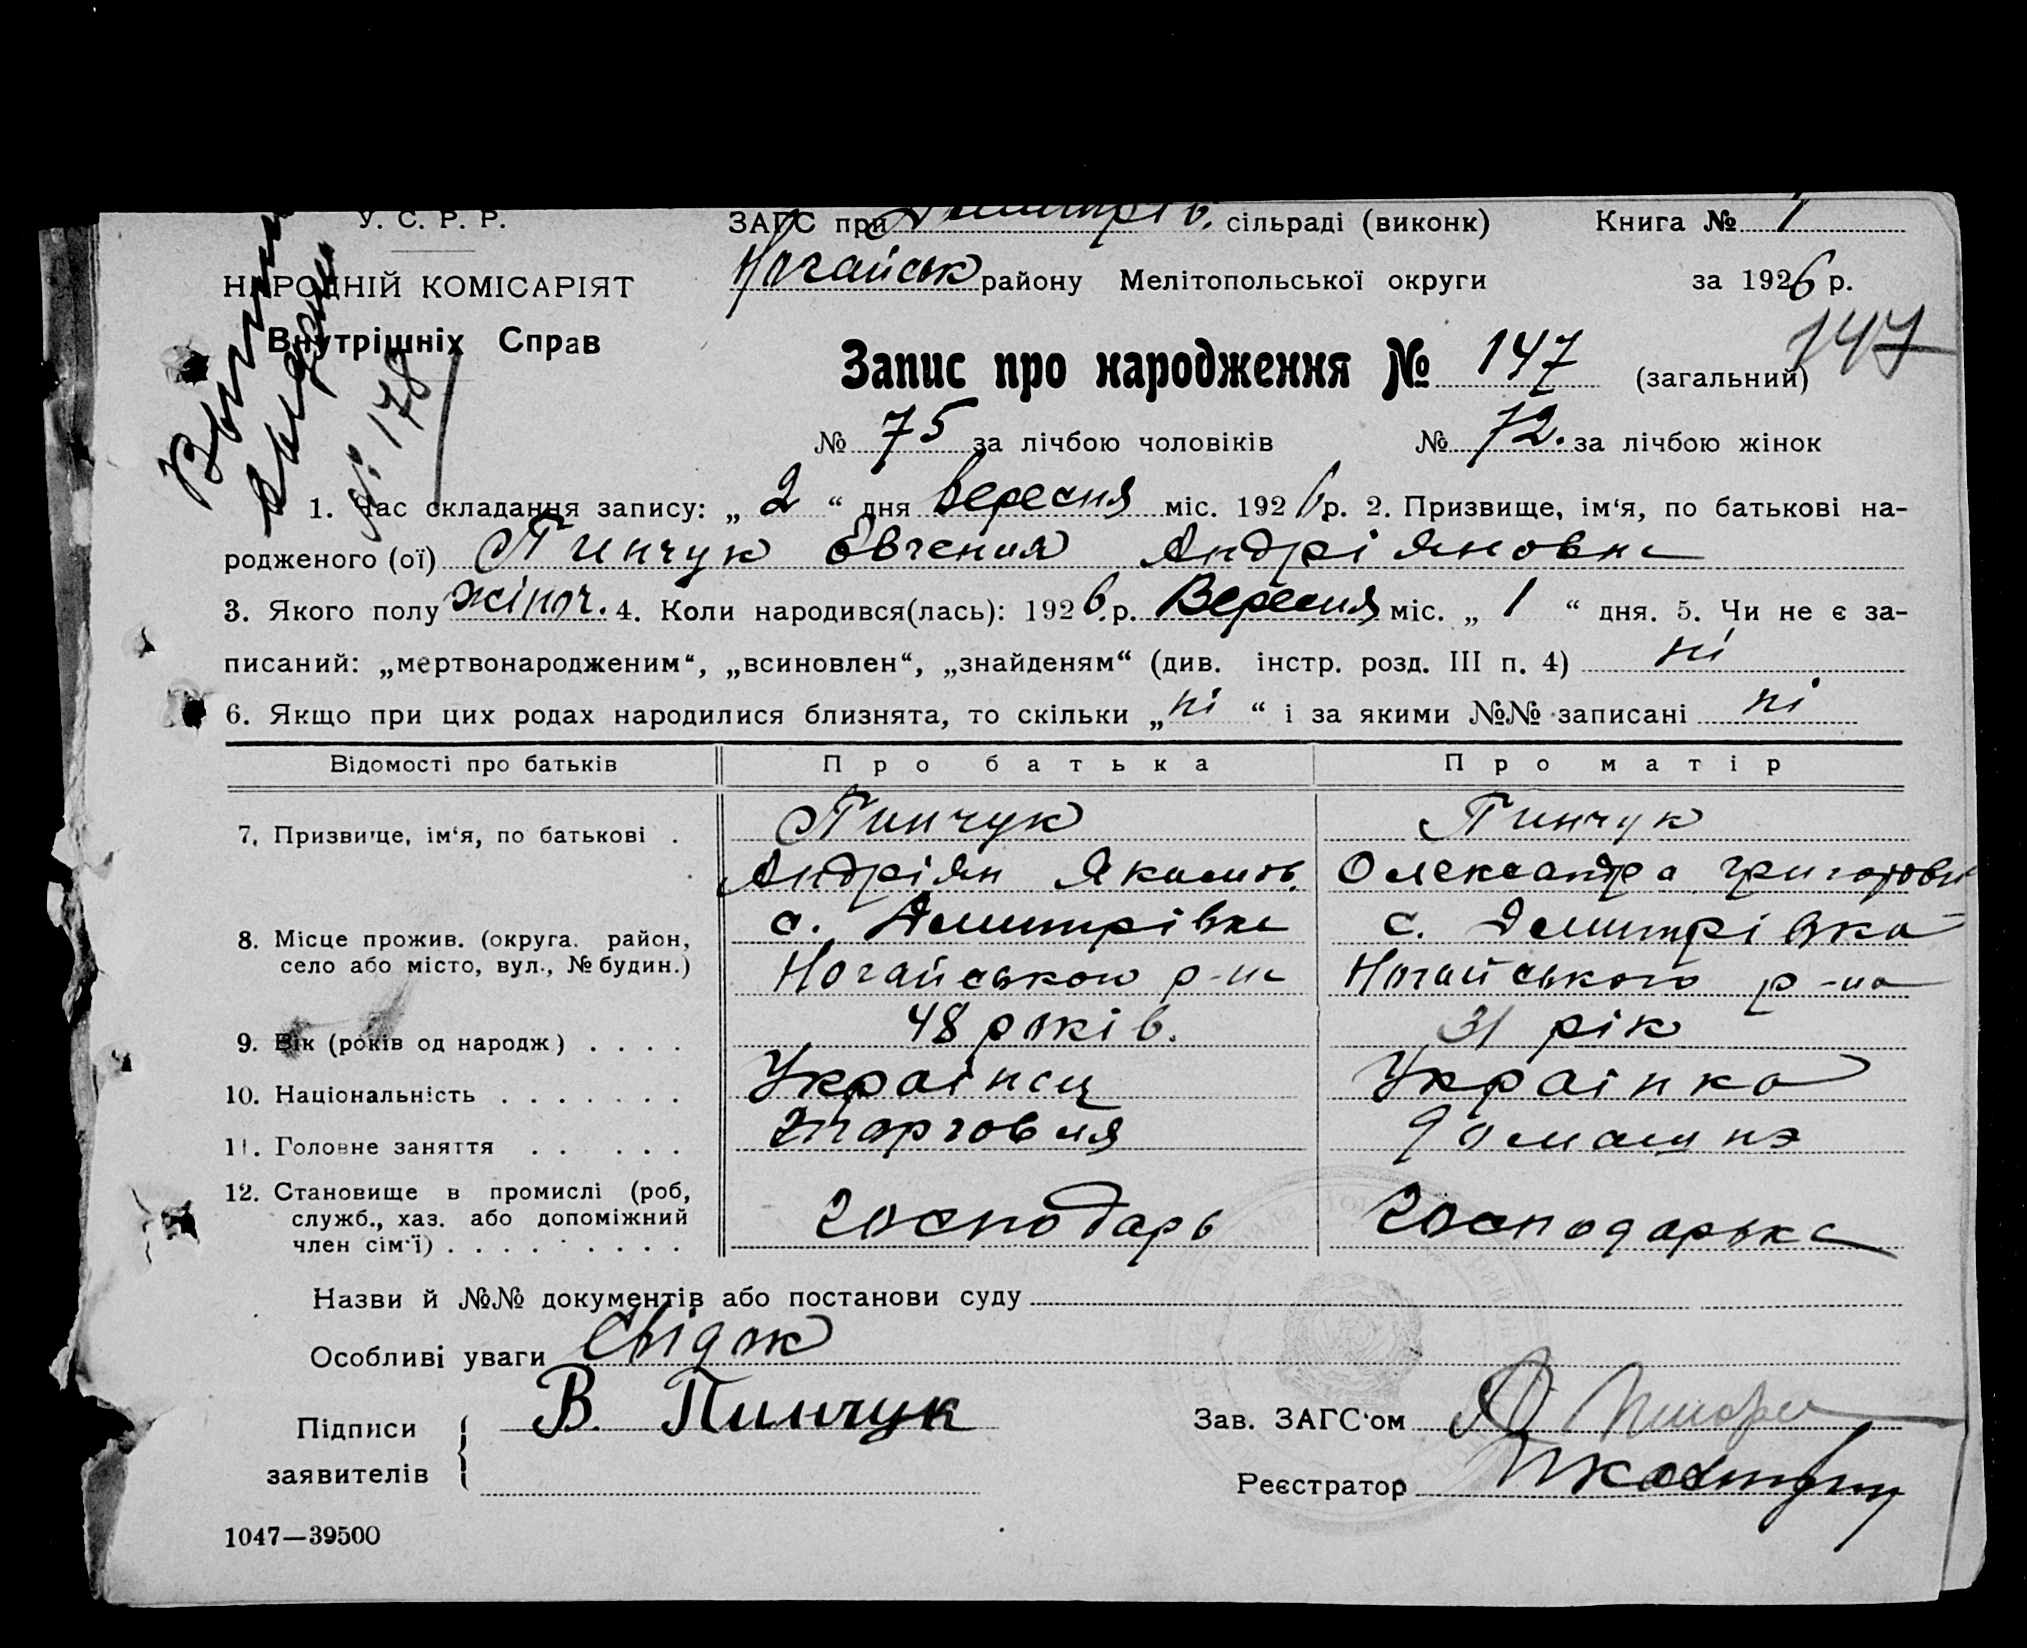 У. С. Р. Р.
ЗАГС при Дмитрів. сільраді (виконк) Книга № 1
НАРОДНІЙ КОМІСАРІЯТ
Внутрішніх Справ
Ногайськ району Мелітопольської округи за 1926 р.
№ 178
Запис про народження № 147 (загальний) 147
№ 75 за лічбою чоловіків № 72. за лічбою жінок
1. Час складання запису: „ 2 “ дня Вересня міс. 1926 р. 2. Призвище, ім‘я, по батькові на-
родженого (ої) Пинчук Евгения Андріяновна
3. Якого полу жіноч. 4. Коли народився(лась): 1926.р. Вересня міс. „ 1 “ дня. 5. Чи не є за-
писаний: „мертвонародженим“, „всиновлен“, „знайденям“ (див. інстр. розд. III п. 4) ні
6. Якщо при цих родах народилися близнята, то скільки „ ні “ і за якими №№ записані ні
Відомості про батьків Про батька Про матір
7. Призвище, ім‘я, по батькові . Пинчук Пинчук
Андріян Якимов. Олександра Григоровн
8. Місце прожив. (округа. район, с. Дмитрівка с. Дмитрівка
село або місто, вул., № будин.) Ногайського р-на Ногайського р-на
9. Вік (років од народж) . . . . 48 років. 31 рік
10. Національність . . . . . . . Українец Українка
11. Головне заняття . . . . . торговля домашнэ
12. Становище в промислі (роб,
служб., хаз. або допоміжний господарь господарька
член сім‘ї) . . . . . . . . .
Назви й №№ документів або постанови суду
Особливі уваги Свідок
Підписи В. Пинчук
заявителів
Зав. ЗАГС‘ом
Реєстратор
1047—39500